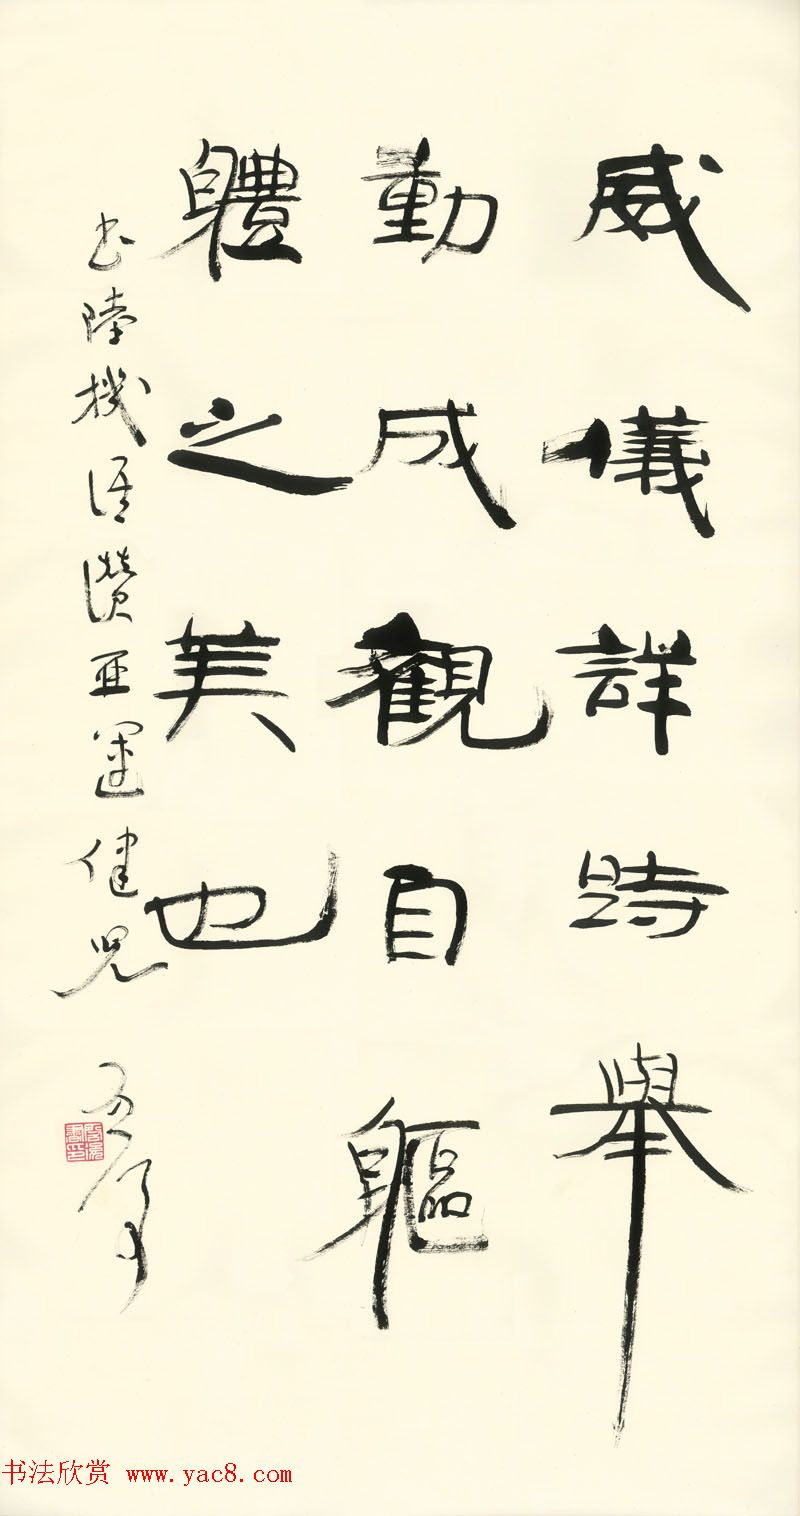 威儀詳時舉
動成觀自軀
軆之美也
書陸機語讚亞運健兒
书法欣赏 www.yac8.com